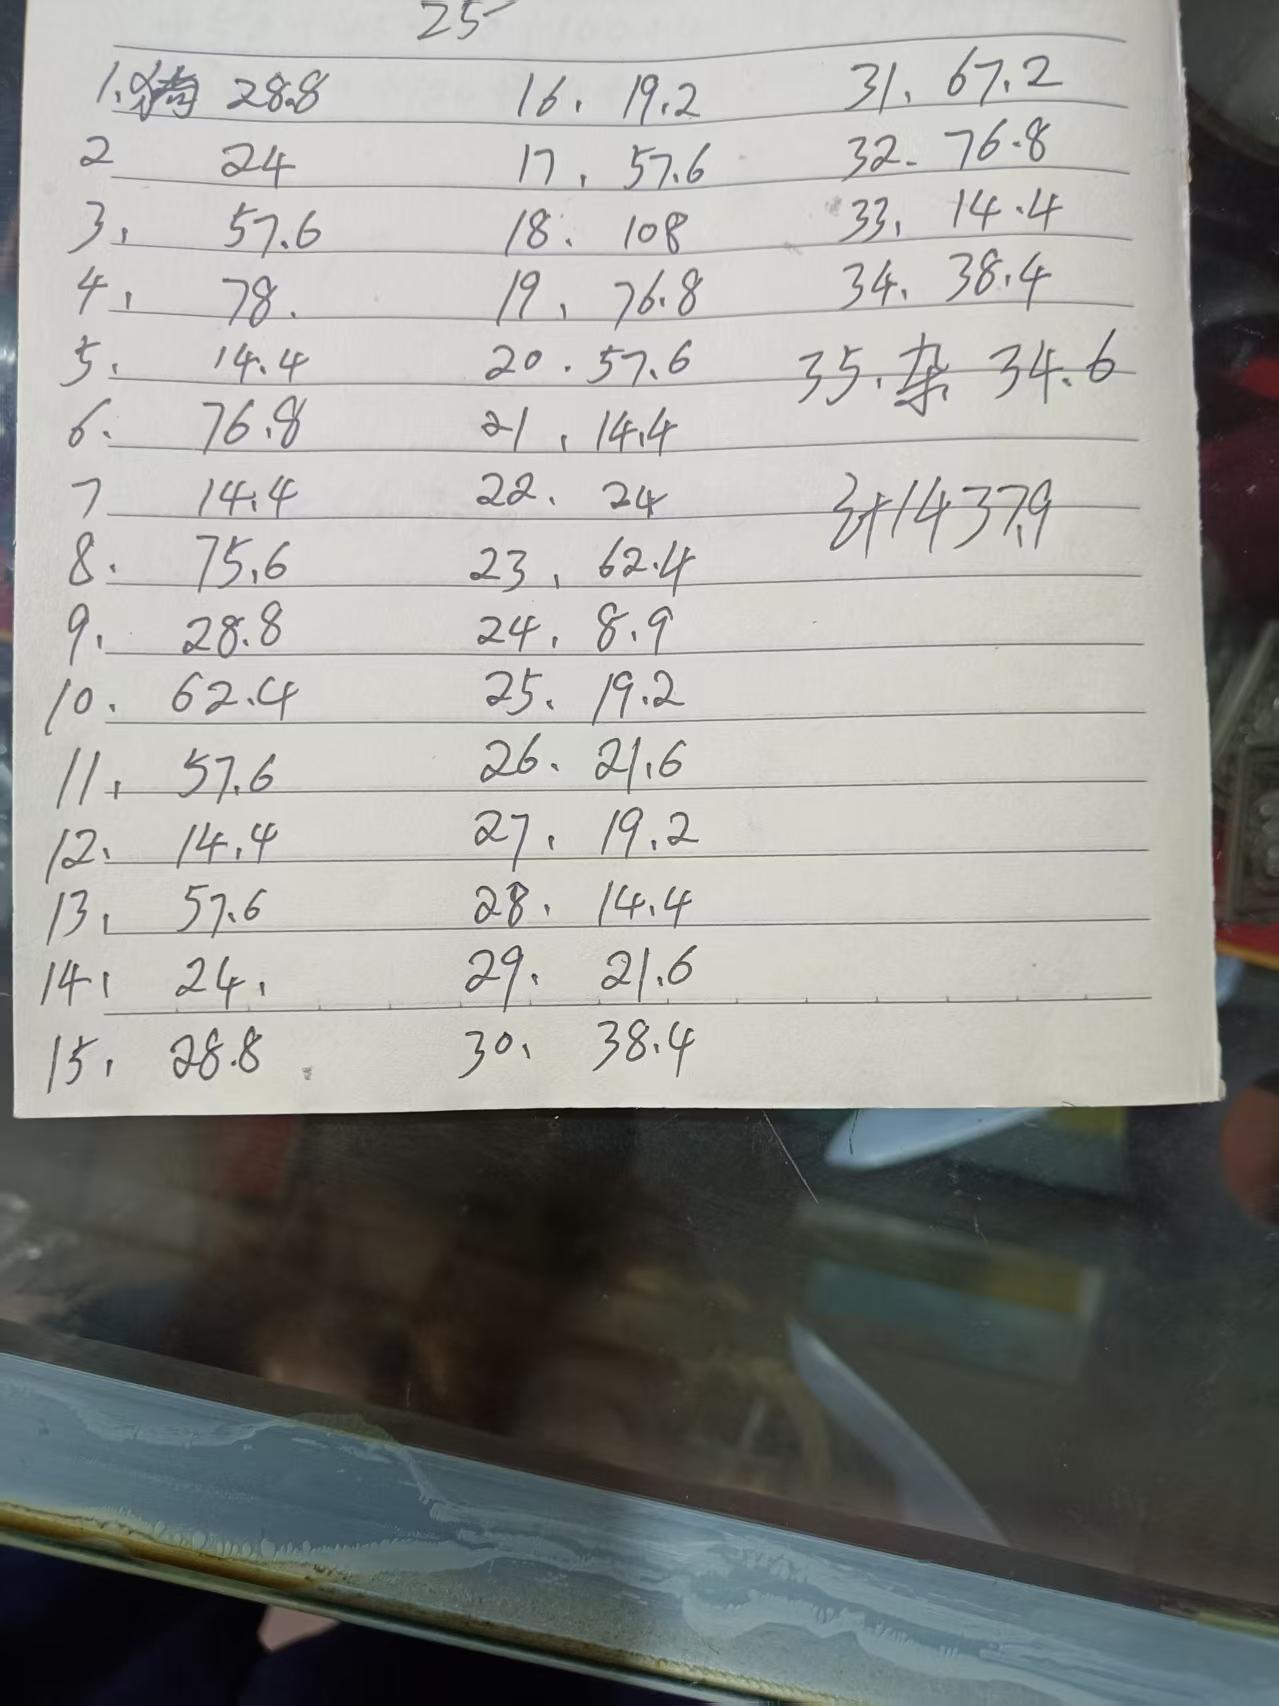 25
1. 精 28.8
2 24
3, 57.6
4, 78.
5. 14.4
6. 76.8
7 14.4
8. 75.6
9. 28.8
10. 62.4
11, 57.6
12. 14.4
13, 57.6
14, 24,
15, 28.8
16. 19.2
17, 57.6
18. 108
19, 76.8
20. 57.6
21, 14.4
22. 24
23, 62.4
24, 8.9
25. 19.2
26. 21.6
27, 19.2
28. 14.4
29. 21.6
30, 38.4
31, 67.2
32. 76.8
33, 14.4
34, 38.4
35. 杂 34.6
计1437.9